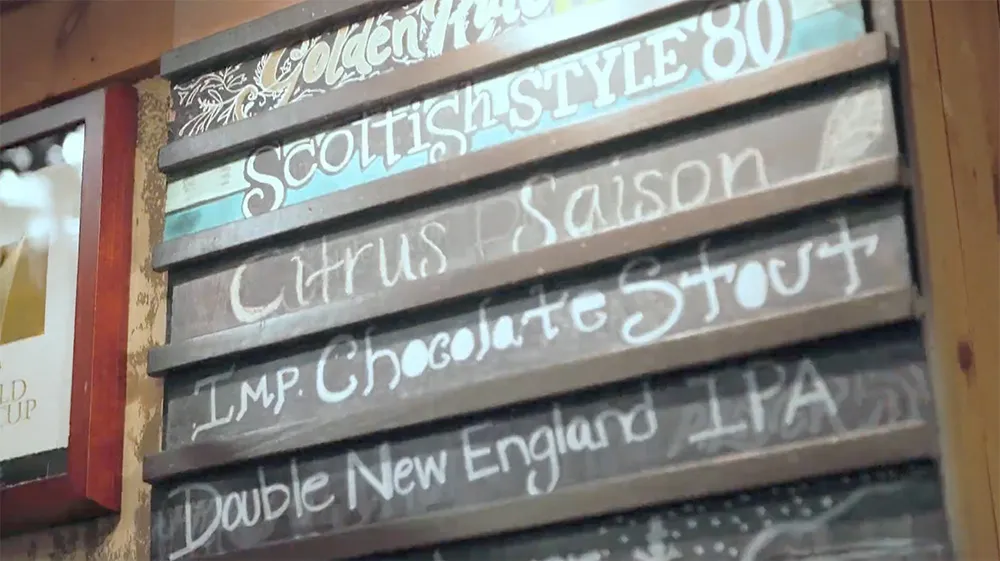 Golden
Scottish STYLE 80
Citrus Saison
IMP. Chocolate Stout
Double New England IPA
CUP